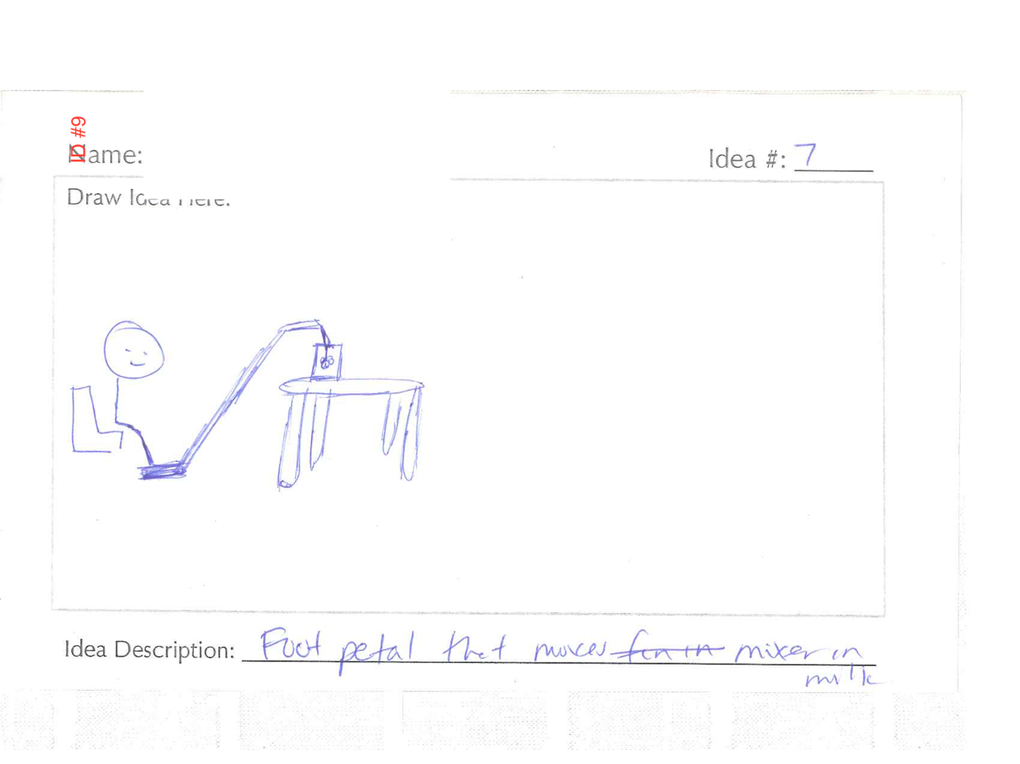 ID #9
Name:
Idea #: 7
Draw Idea Here:
Idea Description: Foot petal that moves fan in mixer in
milk